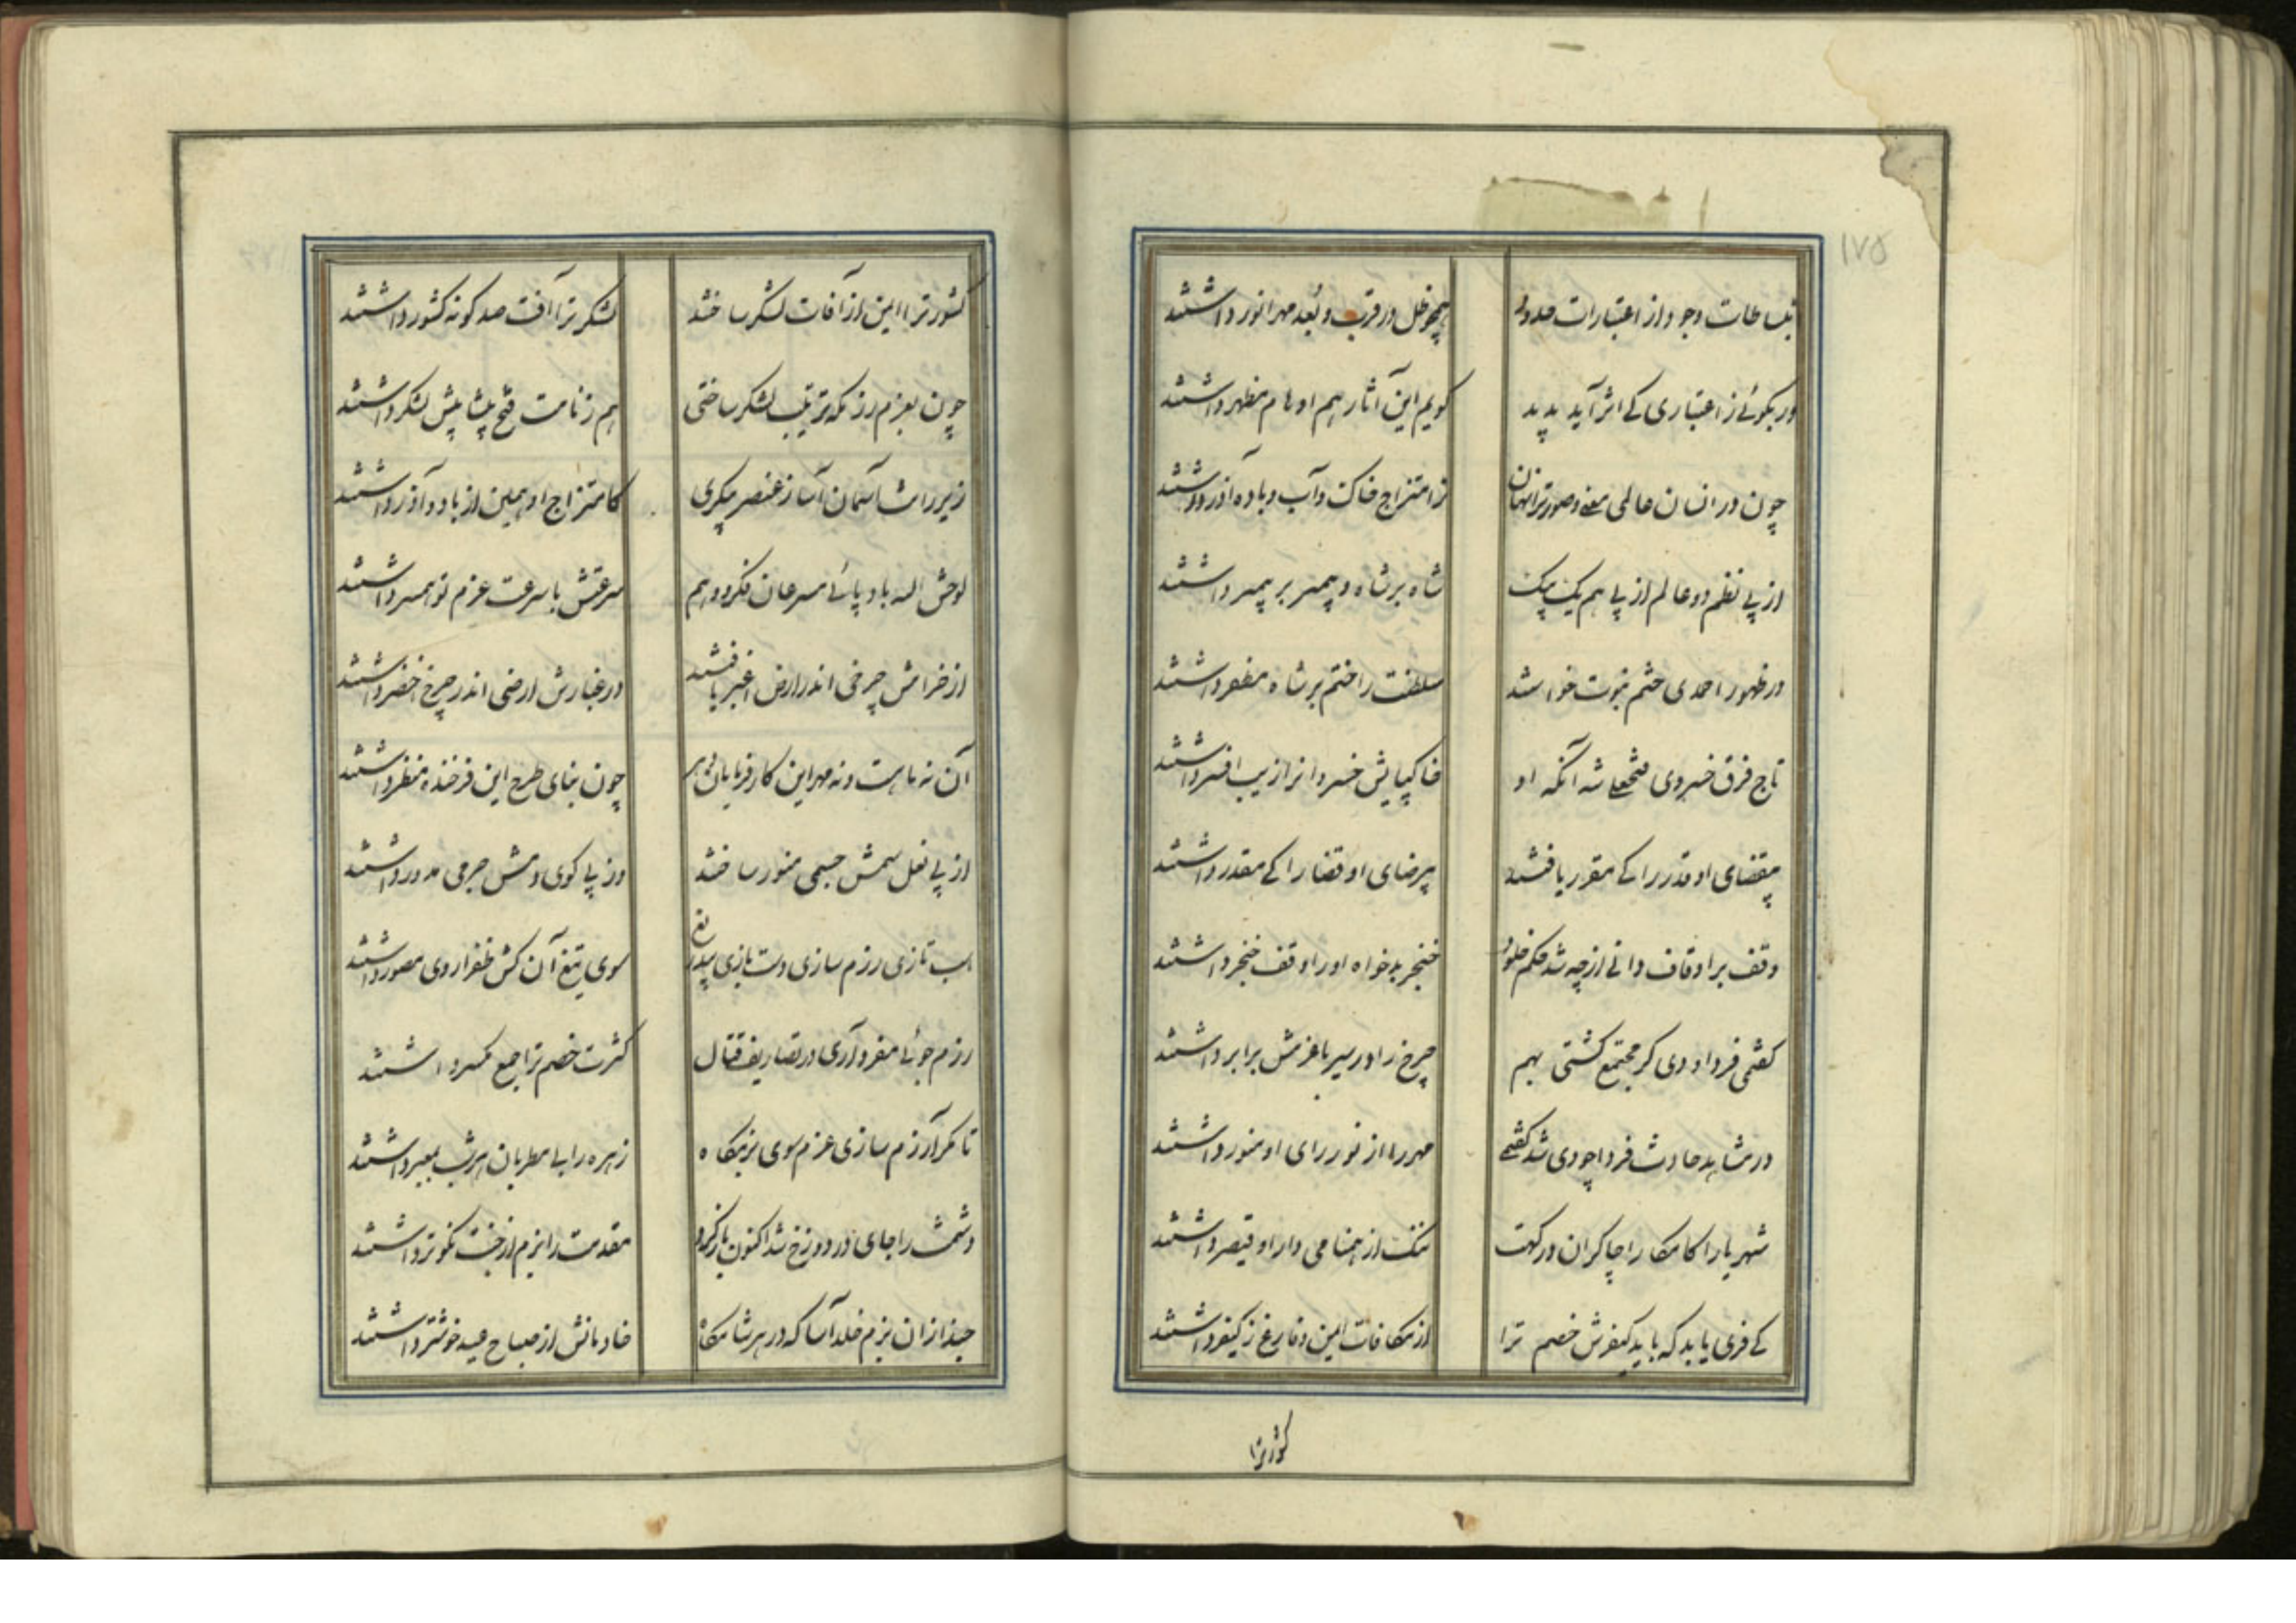 ۱۷۵
بساطات وجود از اعتبارات حدود
همچو ظل در قرب و بُعد مهر انور داشتند
ور بگوئی ز اعتباری کی اثر آید پدید
گویم این آثار هم اوهام مظهر داشتند
چون در انسان عالمی معنی و صورت را نهان
ز امتزاج خاک و آب و باد و آذر داشتند
از پی نظم دو عالم از پی هم یک بیک
شاه بر شاه و پیمبر بر پیمبر داشتند
در ظهور احمدی ختم نبوت خواستند
سلطنت را ختم بر شاه مظفر داشتند
تاج فرق خسروی فتحعلی شه آنکه او
خاکپایش خسروانرا زیب افسر داشتند
بیقضای او قدر را کی مقرر یافتند
بیرضای او قضا را کی مقدر داشتند
وقف بر اوقاف دانی از چه شد حکم خلود
خنجر بدخواه او را وقف خنجر داشتند
گفتمی فردا و دی گر مجتمع گشتی بهم
چرخ را در سیر با عزمش برابر داشتند
ور نشاید حادث فردا چو دی شد گفتمی
مهر را از نور رای او منور داشتند
شهریارا کامکارا چاکران درگهت
ننگ از همنامی دارا و قیصر داشتند
کی فری یابد که باید کیفرش خصم ترا
از مکافات ایمن و فارغ ز کیفر داشتند
کشور ترا
کشور ترا ایمن از آفات لشکر ساختند
لشکر ترا آفت صد گونه کشور داشتند
چون بعزم رزمگه ترتیب لشکر ساختی
هم ز نامت فتح پیشاپیش لشکر داشتند
زیر رانت آسمان آسا ز عنصر پیکری
کامتزاج او همین از باد و آذر داشتند
لوحش الله باد پائی مسرعان فکر و وهم
سرعتش با سرعت عزم تو همسر داشتند
از خرامش چرخی اندر ارض اغبر یافتند
در غبارش ارضی اندر چرخ اخضر داشتند
آن نه ماهست و نه مهر این کارفرمایان
چون بنای طرح این فرخنده منظر داشتند
از پی نعل سمش جسمی منور ساختند
وز پی گوی دمش جرمی مدور داشتند
اسب تازی رزم سازی دست یازی بیدریغ
سوی تیغ آن کش ظفر از وی مصور داشتند
رزم جوئی مفرد آری در تصاریف قتال
کثرت خصم ترا جمع مکسر داشتند
تا مگر آرزم سازی عزم سوی بزمگاه
زهره را با مطربان هر شب بمعبر داشتند
دشمنت را جای در دوزخ شد اکنون باز گرد
مقدمت را بزم از جنت نکوتر داشتند
حبذا زان بزم خلد آسا که در هر شامگاه
خادمانش از صباح عید خوشتر داشتند